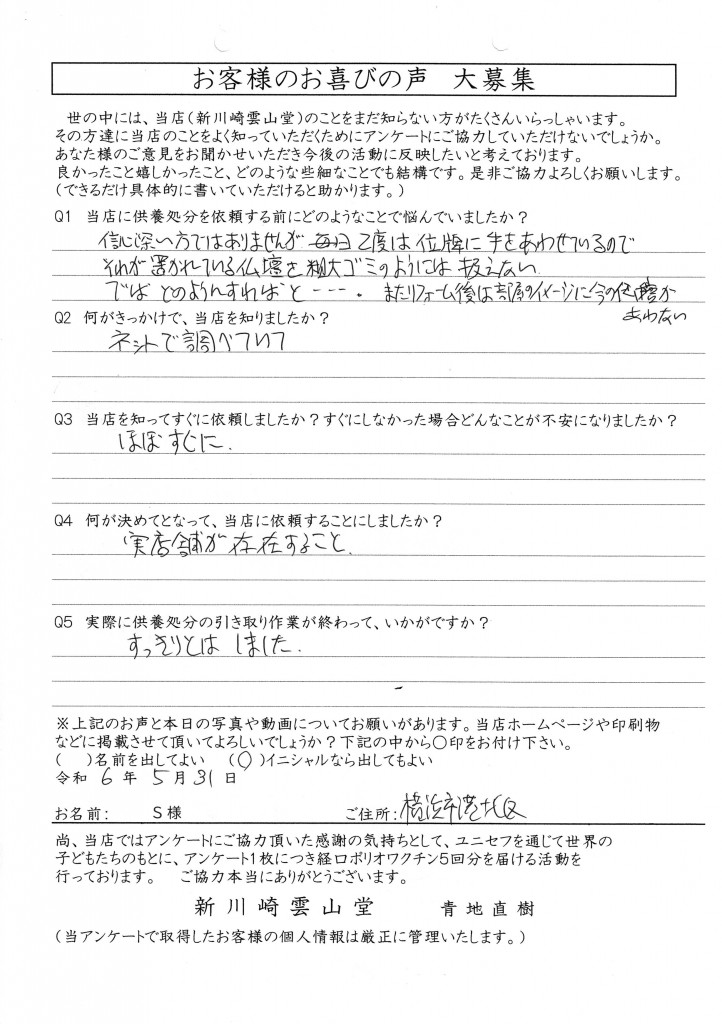 お客様のお喜びの声　大募集
世の中には、当店(新川崎雲山堂)のことをまだ知らない方がたくさんいらっしゃいます。
その方達に当店のことをよく知っていただくためにアンケートにご協力していただけないでしょうか。
あなた様のご意見をお聞かせいただき今後の活動に反映したいと考えております。
良かったこと嬉しかったこと、どのような些細なことでも結構です。是非ご協力よろしくお願いします。
(できるだけ具体的に書いていただけると助かります。)
Q1 当店に供養処分を依頼する前にどのようなことで悩んでいましたか？
信心深い方ではありませんが毎日2度は位牌に手をあわせているので
それが置かれている仏壇を粗大ゴミのようには扱えない
ではどのようにすればと----. またリフォーム後は部屋のイメージに今の仏壇が
あわない
Q2 何がきっかけで、当店を知りましたか？
ネットで調べていて
Q3 当店を知ってすぐに依頼しましたか？すぐにしなかった場合どんなことが不安になりましたか？
ほぼすぐに.
Q4 何が決めてとなって、当店に依頼することにしましたか？
実店舗が存在すること.
Q5 実際に供養処分の引き取り作業が終わって、いかがですか？
すっきりとはしました.
※上記のお声と本日の写真や動画についてお願いがあります。当店ホームページや印刷物
などに掲載させて頂いてよろしいでしょうか？下記の中から〇印をお付け下さい。
(　)名前を出してよい　(〇)イニシャルなら出してもよい
令和 6 年 5 月 31 日
お名前：　S様　ご住所：横浜市港北区
尚、当店ではアンケートにご協力頂いた感謝の気持ちとして、ユニセフを通じて世界の
子どもたちのもとに、アンケート1枚につき経口ポリオワクチン5回分を届ける活動を
行っております。　ご協力本当にありがとうございます。
新川崎雲山堂　青地直樹
(当アンケートで取得したお客様の個人情報は厳正に管理いたします。)